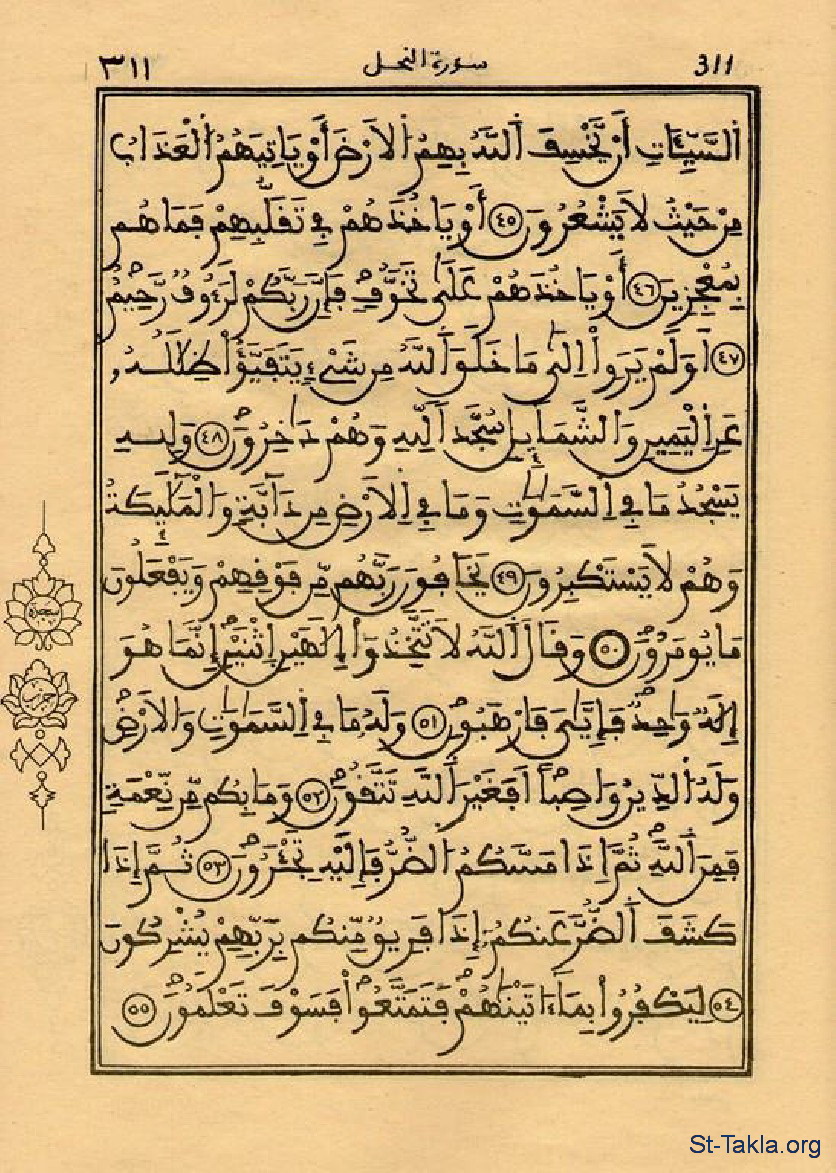 ٣١١ سورة النحل 311
اَ۬لسَّيِّـَٔاتِ أَنْ يَّخْسِفَ اَ۬للَّهُ بِهِمُ اُ۬لَارْضَ أَوْ يَاتِيَهُمُ اُ۬لْعَذَابُ
مِنْ حَيْثُ لَا يَشْعُرُونَ ٤٥ أَوْ يَاخُذَهُمْ فِے تَقَلُّبِهِمْ فَمَا هُم
بِمُعْجِزِينَ ٤٦ أَوْ يَاخُذَهُمْ عَلَىٰ تَخَوُّفٍ فَإِنَّ رَبَّكُمْ لَرَءُوفٌ رَّحِيمٌ
٤٧ اَوَلَمْ يَرَوِاْ اِلَىٰ مَا خَلَقَ اَ۬للَّهُ مِن شَےْءٍ يَتَفَيَّؤُاْ ظِلَٰلُهُۥ
عَنِ اِ۬لْيَمِينِ وَالشَّمَآئِلِ سُجَّداً لِّلهِ وَهُمْ دَٰخِرُونَ ٤٨ وَلِلهِ
يَسْجُدُ مَا فِے اِ۬لسَّمَٰوَٰتِ وَمَا فِے اِ۬لَارْضِ مِن دَآبَّةٍ وَالْمَلَٰٓئِكَةُ
وَهُمْ لَا يَسْتَكْبِرُونَ ٤٩ يَخَافُونَ رَبَّهُم مِّن فَوْقِهِمْ وَيَفْعَلُونَ
مَا يُومَرُونَ ٥٠ وَقَالَ اَ۬للَّهُ لَا تَتَّخِذُوٓاْ إِلَٰهَيْنِ اِ۪ثْنَيْنِ إِنَّمَا هُوَ
إِلَٰهٌ وَٰحِدٌ فَإِيَّٰيَ فَارْهَبُونِ ٥١ وَلَهُۥ مَا فِے اِ۬لسَّمَٰوَٰتِ وَالَارْضِ
وَلَهُ اُ۬لدِّينُ وَاصِباً اَفَغَيْرَ اَ۬للَّهِ تَتَّقُونَ ٥٢ وَمَا بِكُم مِّن نِّعْمَةٍ
فَمِنَ اَ۬للَّهِ ثُمَّ إِذَا مَسَّكُمُ اُ۬لضُّرُّ فَإِلَيْهِ تَجْـَٔرُونَ ٥٣ ثُمَّ إِذَا
كَشَفَ اَ۬لضُّرَّ عَنكُمُۥٓ إِذَا فَرِيقٌ مِّنكُم بِرَبِّهِمْ يُشْرِكُونَ
٥٤ لِيَكْفُرُواْ بِمَآ ءَاتَيْنَٰهُمْ فَتَمَتَّعُواْ فَسَوْفَ تَعْلَمُونَ ٥٥
سجدة
حزب
St-Takla.org